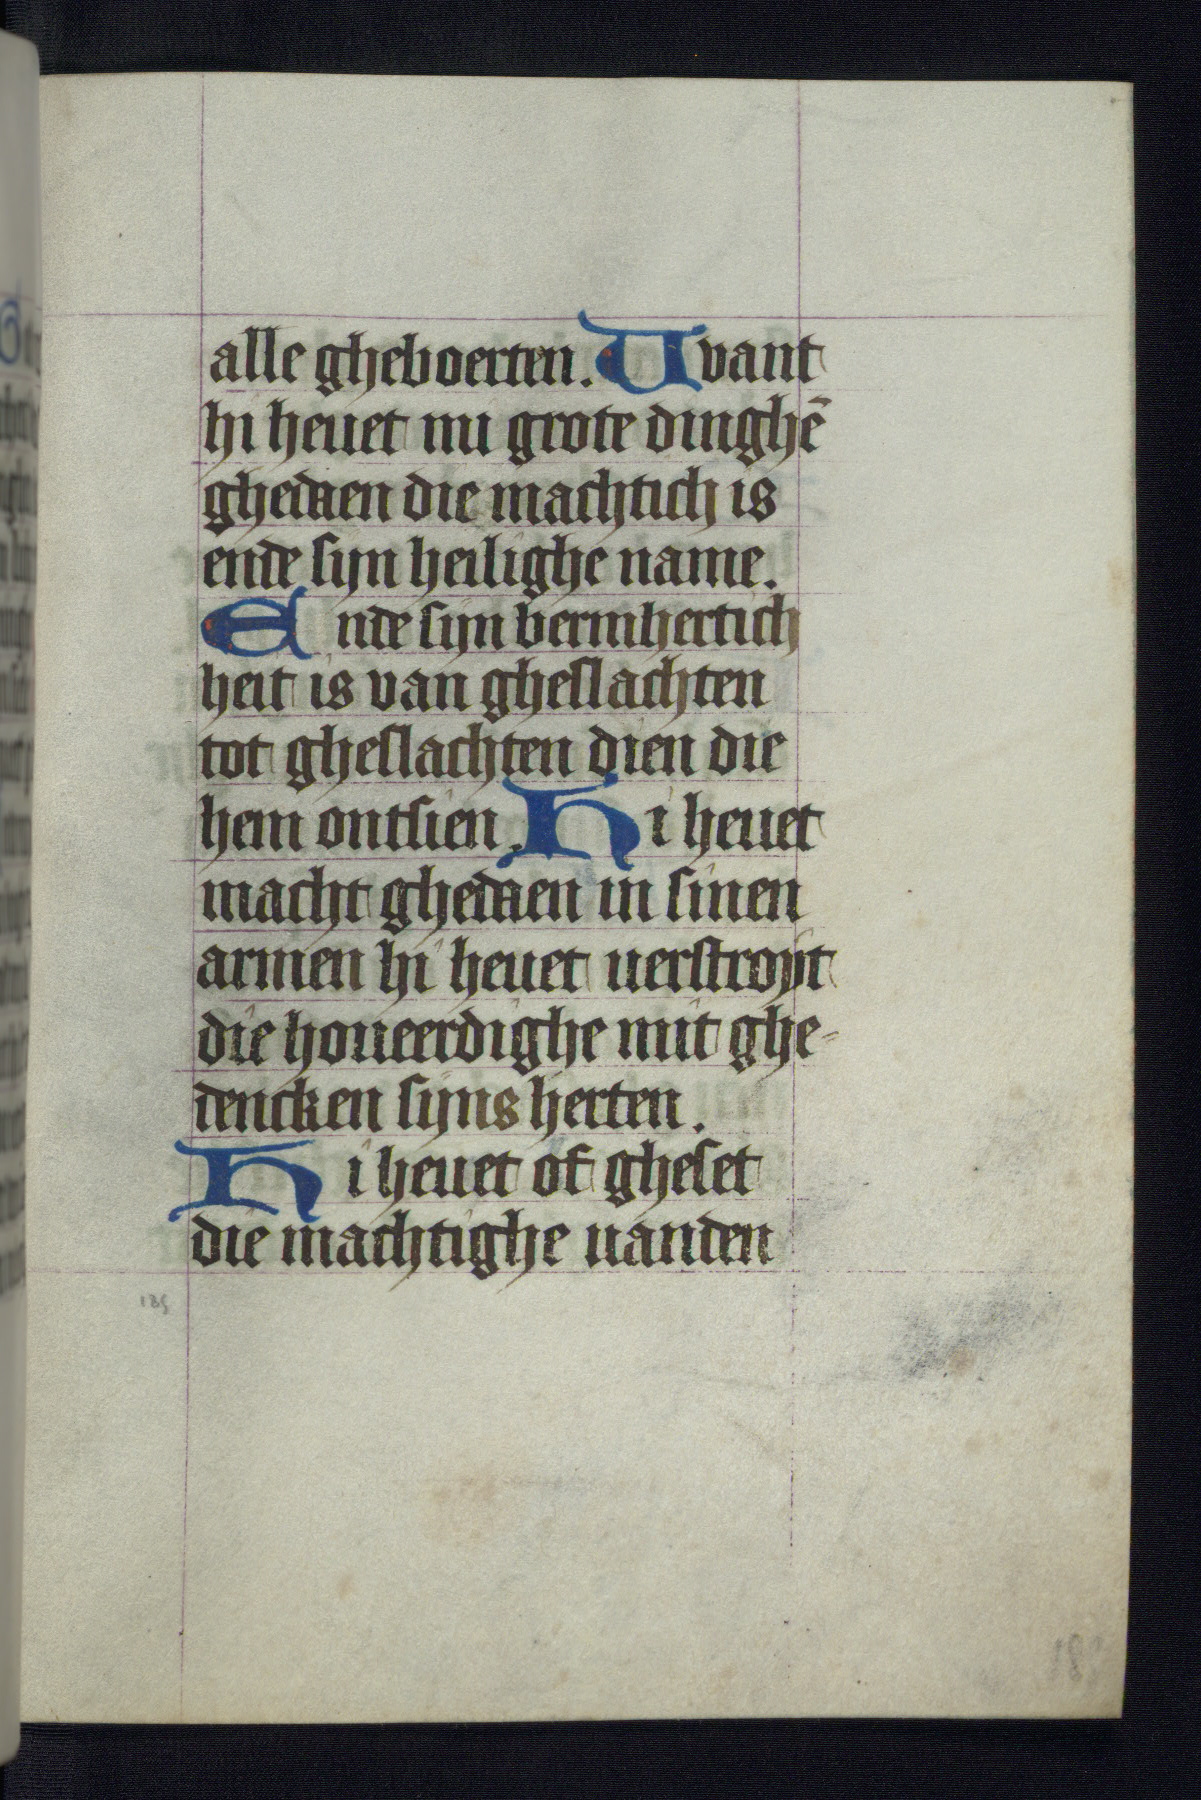 alle gheboerten. Uvant
hi heuet mi grote dinghē
ghedaen die machtich is
ende sijn heilighe name.
Ende sijn bermhertich
heit is van gheslachten
tot gheslachten dien die
hem ontsien. Hi heuet
macht ghedaen in sinen
armen hi heuet uerstroyt
die houeerdighe mit ghe-
dencken sijns herten.
Hi heuet of gheset
die machtighe uanden